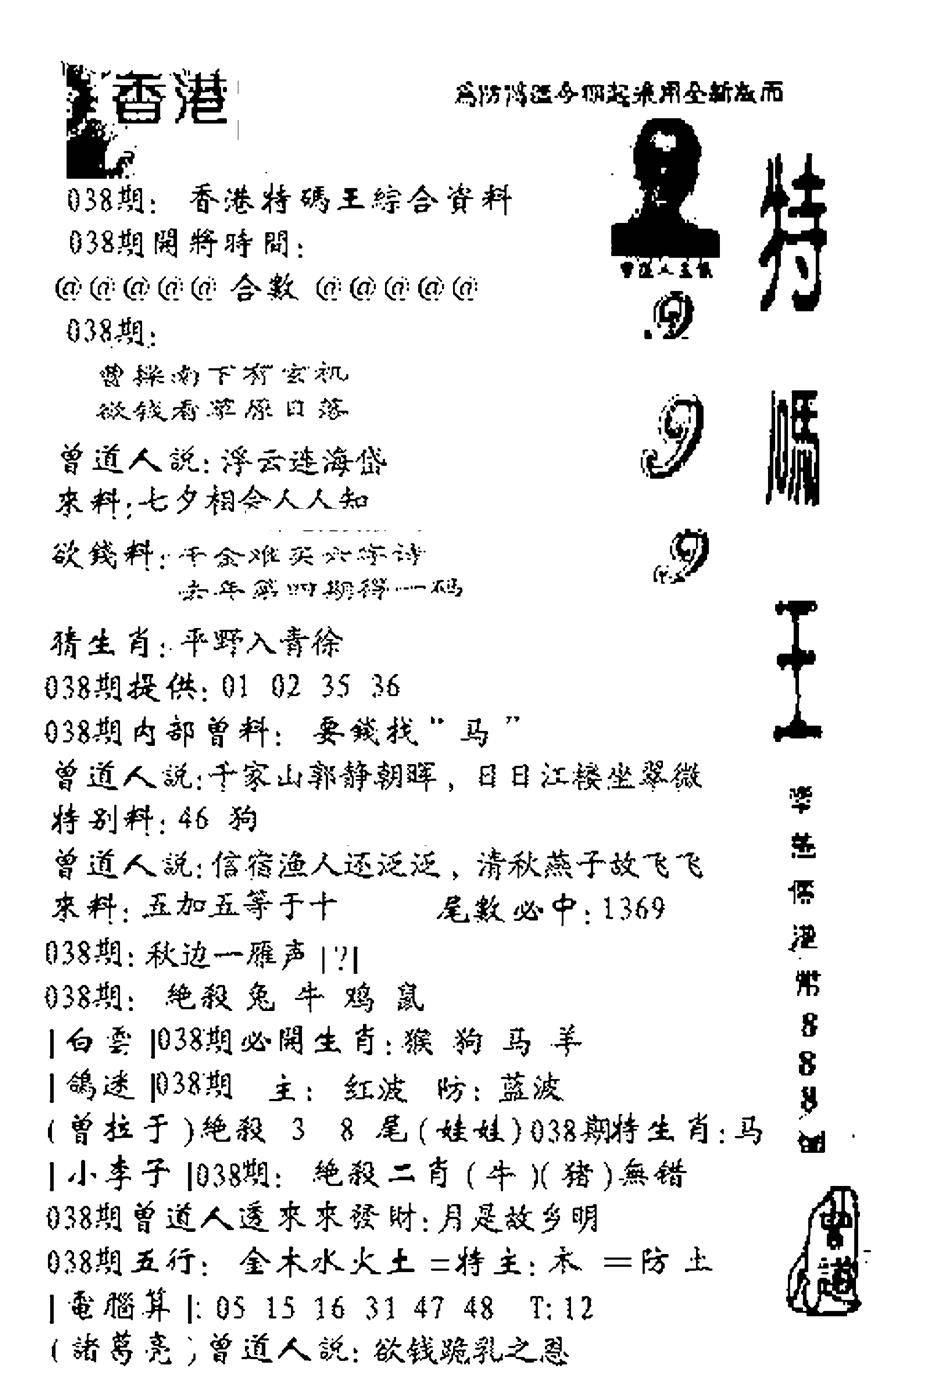 香港
為防濫今期起采用全新版面
038期: 香港特碼王綜合資料
038期開將時間:
@@@@@ 合數 @@@@@
038期:
曹操南下有玄机
欲钱看草原日落
曾道人説:浮云连海岱
來料:七夕相会人人知
欲錢料:千金难买六字诗
去年第四期得一码
猜生肖:平野入青徐
038期提供:01 02 35 36
038期内部曾料: 要錢找“马”
曾道人説:千家山郭静朝晖,日日江楼坐翠微
特别料:46 狗
曾道人説:信宿渔人还泛泛,清秋燕子故飞飞
來料:五加五等于十 尾數必中:1369
038期:秋边一雁声|?|
038期: 絶殺 兔 牛 鸡 鼠
|白雲|038期必開生肖:猴 狗 马 羊
|鴿迷|038期 主: 红波 防:蓝波
(曾拉于)絶殺 3 8 尾(娃娃)038期特生肖:马
|小李子|038期: 絶殺二肖(牛)(猪)無错
038期曾道人透來來發財:月是故乡明
038期五行: 金木水火土=特主:木 =防 土
|電腦算|:05 15 16 31 47 48 T:12
(諸葛亮)曾道人説:欲钱跪乳之恩
特碼王
999
888
曾道